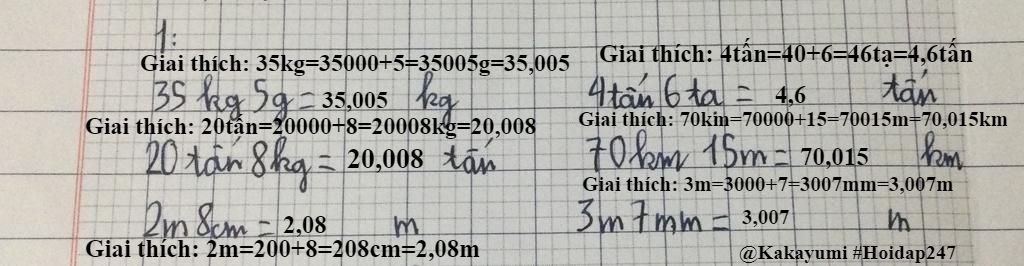 1:
Giai thích: 35kg=35000+5=35005g=35,005
35 kg 5g = 35,005 kg
Giai thích: 20tấn=20000+8=20008kg=20,008
20 tấn 8kg = 20,008 tấn
2m 8cm = 2,08 m
Giai thích: 2m=200+8=208cm=2,08m
Giai thích: 4tấn=40+6=46tạ=4,6tấn
4 tấn 6 tạ = 4,6 tấn
Giai thích: 70km=70000+15=70015m=70,015km
70 km 15m = 70,015 km
Giai thích: 3m=3000+7=3007mm=3,007m
3m 7mm = 3,007 m
@Kakayumi #Hoidap247